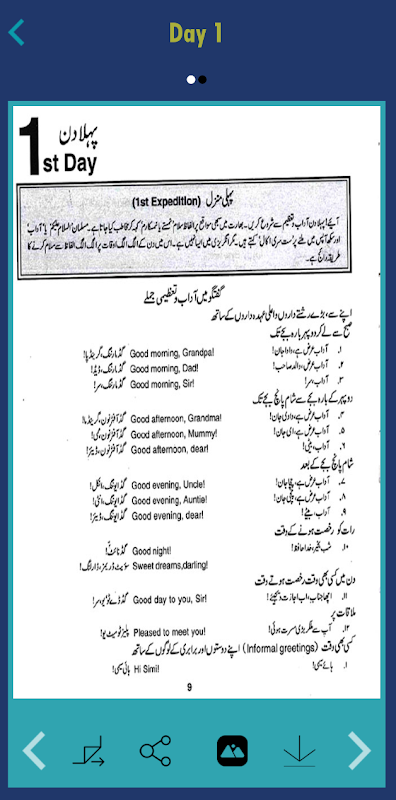 Day 1
1st Day
پہلا دن
پہلی منزل (1st Expedition)
آیئے! پہلا دن آداب و تعظیم سے شروع کریں۔ بھارت میں سبھی مواقع پر الفاظ سلام، نمستے یا نمسکارم کہہ کر مخاطب کیا جاتا ہے۔ مسلمان 'السلام علیکم' یا 'آداب'
اور سکھ آپس میں ملنے پر 'ست سری اکال' کہتے ہیں۔ مگر انگریزی میں ایسا نہیں ہے۔ اس میں دن کے الگ الگ اوقات پر الگ الگ الفاظ سے سلام کرنے کا
طریقہ رائج ہے۔
گفتگو میں آداب و تعظیمی جملے
اپنے سے بڑے رشتے داروں و اعلیٰ عہدہ داروں کے ساتھ
صبح سے لے کر دوپہر بارہ بجے تک
۱۔ آداب عرض ہے، دادا جان! Good morning, Grandpa! گڈ مارننگ، گرینڈپا!
۲۔ آداب عرض ہے، والد صاحب! Good morning, Dad! گڈ مارننگ، ڈیڈ!
۳۔ آداب، سر! Good morning, Sir! گڈ مارننگ، سر!
دوپہر کے بارہ بجے سے شام پانچ بجے تک
۴۔ آداب عرض ہے، دادی جان! Good afternoon, Grandma! گڈ آفٹرنون، گرینڈما!
۵۔ آداب عرض ہے، امی جان! Good afternoon, Mummy! گڈ آفٹرنون، ممی!
۶۔ آداب، بیٹی! Good afternoon, dear! گڈ آفٹرنون، ڈیئر!
شام پانچ بجے کے بعد
۷۔ آداب عرض ہے، چچا جان! Good evening, Uncle! گڈ ایوننگ، انکل!
۸۔ آداب عرض ہے، چچی جان! Good evening, Auntie! گڈ ایوننگ، آنٹی!
۹۔ آداب، بیٹے! Good evening, dear! گڈ ایوننگ، ڈیئر!
رات کو رخصت ہونے کے وقت
۱۰۔ شب بخیر، خدا حافظ! Good night! گڈ نائٹ!
Sweet dreams,darling! سویٹ ڈریمز، ڈارلنگ!
دن میں کسی بھی وقت رخصت ہوتے وقت
۱۱۔ اچھا جناب، اب اجازت دیجئے! Good day to you, Sir! گڈ ڈے ٹو یو، سر!
ملاقات پر
۱۲۔ آپ سے ملکر بڑی مسرت ہوئی! Pleased to meet you! پلیزڈ ٹو میٹ یو!
کسی بھی وقت (Informal greetings) اپنے دوستوں اور برابری کے لوگوں کے ساتھ
۱۔ ہائے سیمی! Hi Simi! ہائی سیمی!
9